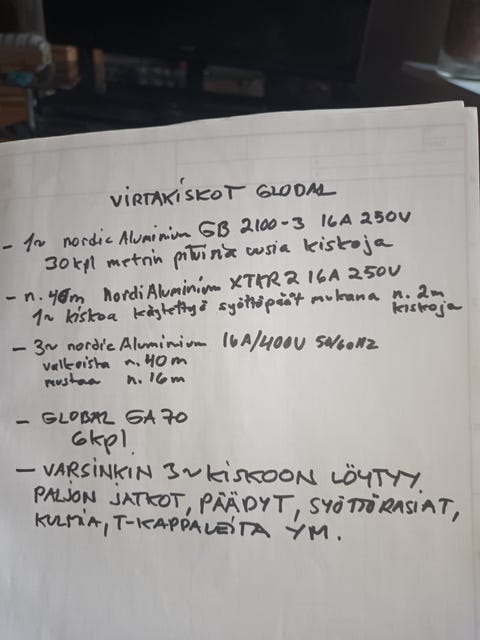 VIRTAKISKOT GLOBAL
- 1~ nordic Aluminium GB 2100-3 16A 250V
30kpl metrin pituisia uusia kiskoja
- n. 46m Nordi Aluminium XTKR2 16A 250V
1~ kiskoa käytettyö syöttöpäät mukana n. 2m
kiskoja
- 3~ nordic Aluminium 16A/400V 50/60Hz
valkoista n. 40m
mustaa n. 16m
- GLOBAL GA70
6kpl
- VARSINKIN 3~KISKOON LÖYTYY
PALJON JATKOT, PÄÄDYT, SYÖTTÖRASIAT,
KULMIA, T-KAPPALEITA YM.